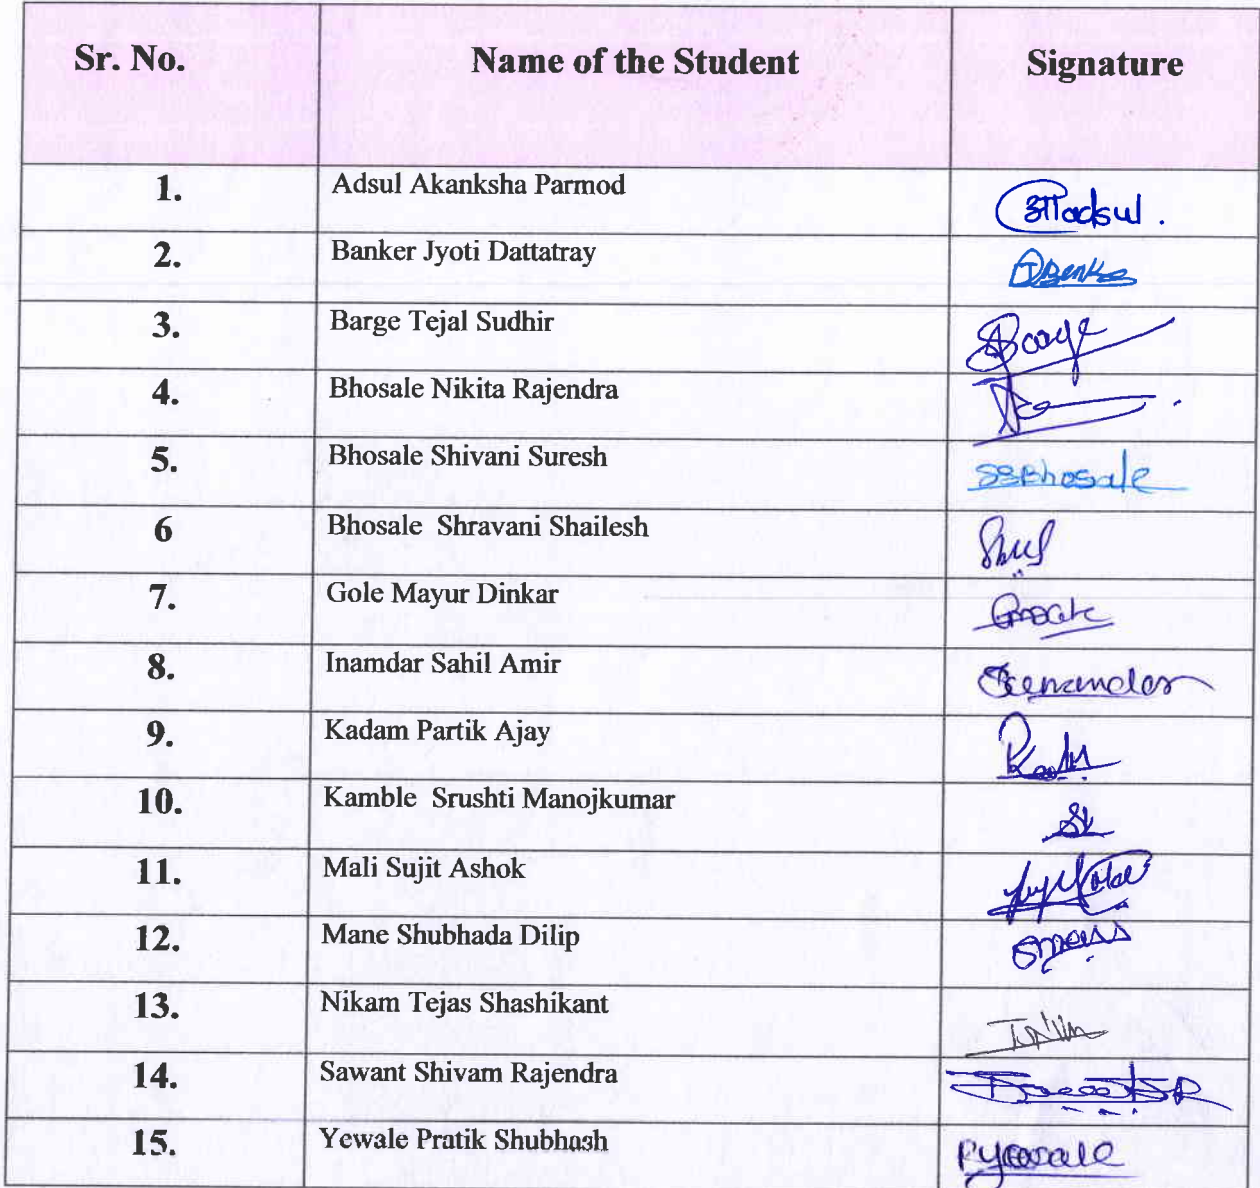 Sr. No. Name of the Student Signature
1. Adsul Akanksha Parmod
2. Banker Jyoti Dattatray
3. Barge Tejal Sudhir
4. Bhosale Nikita Rajendra
5. Bhosale Shivani Suresh SSBhosale
6 Bhosale Shravani Shailesh
7. Gole Mayur Dinkar
8. Inamdar Sahil Amir
9. Kadam Partik Ajay
10. Kamble Srushti Manojkumar
11. Mali Sujit Ashok
12. Mane Shubhada Dilip
13. Nikam Tejas Shashikant
14. Sawant Shivam Rajendra
15. Yewale Pratik Shubhash